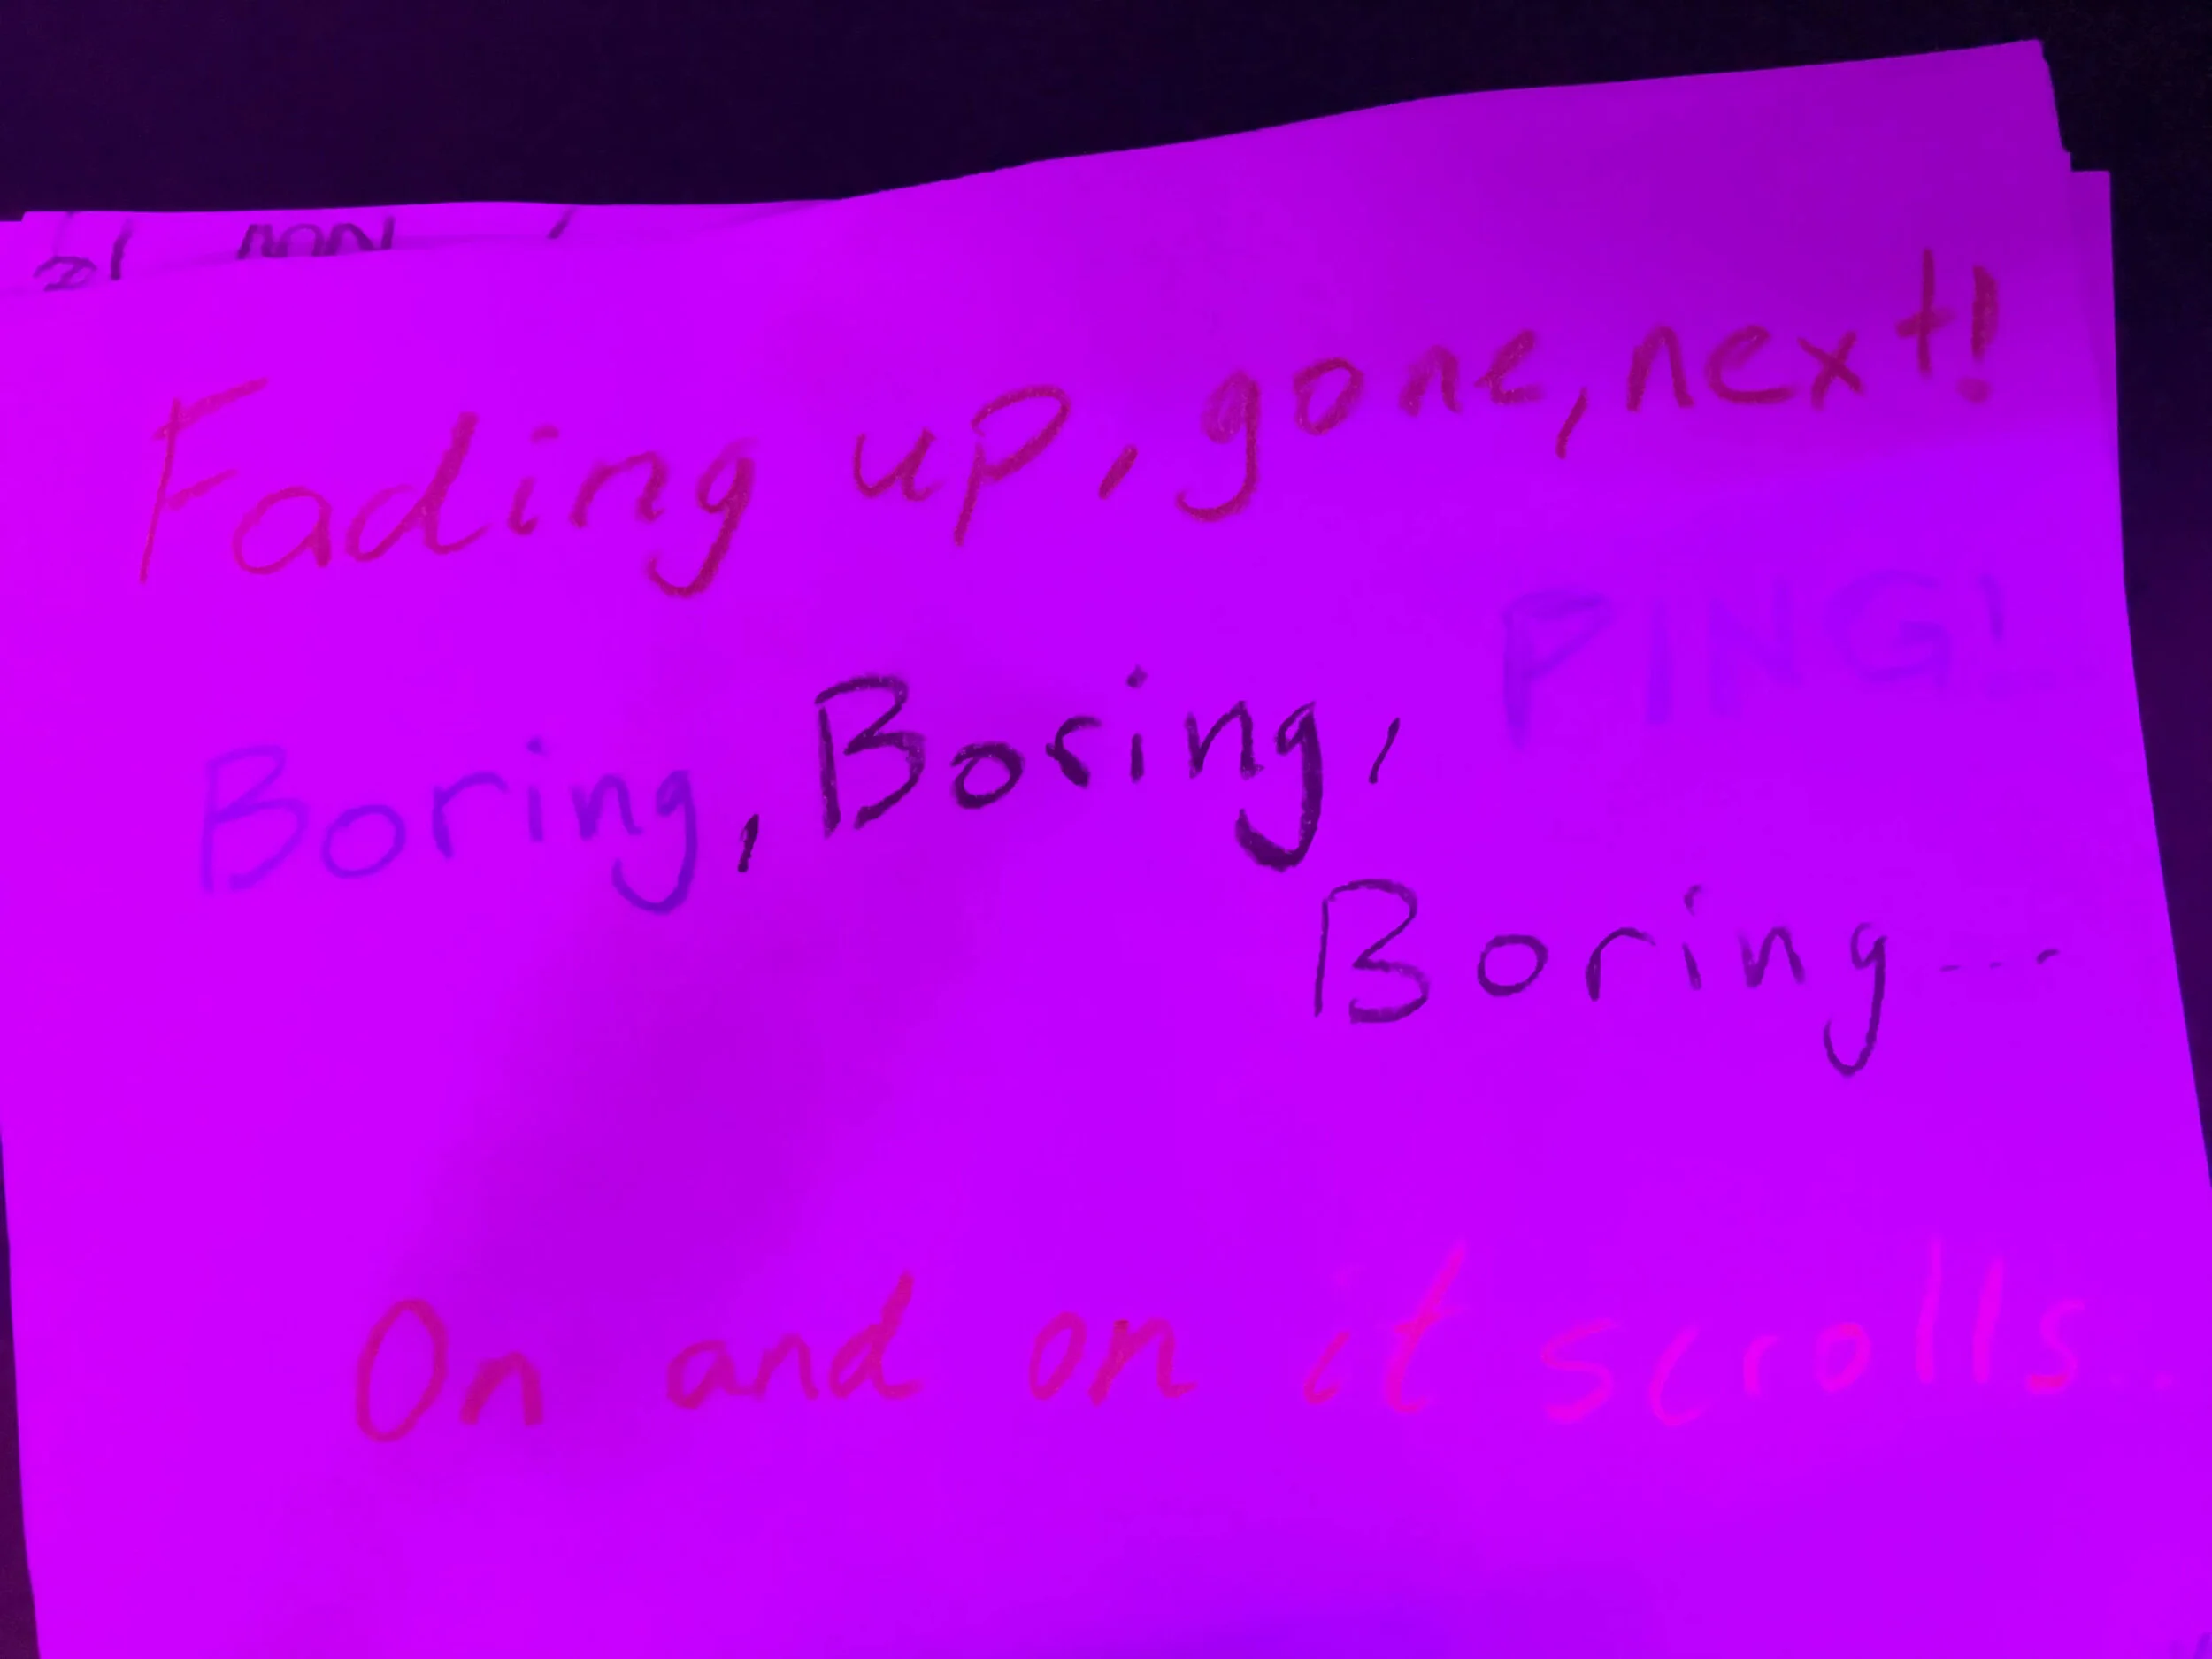 Fading up, gone, next!
Boring, Boring, PING!..
Boring...
On and on it scrolls..